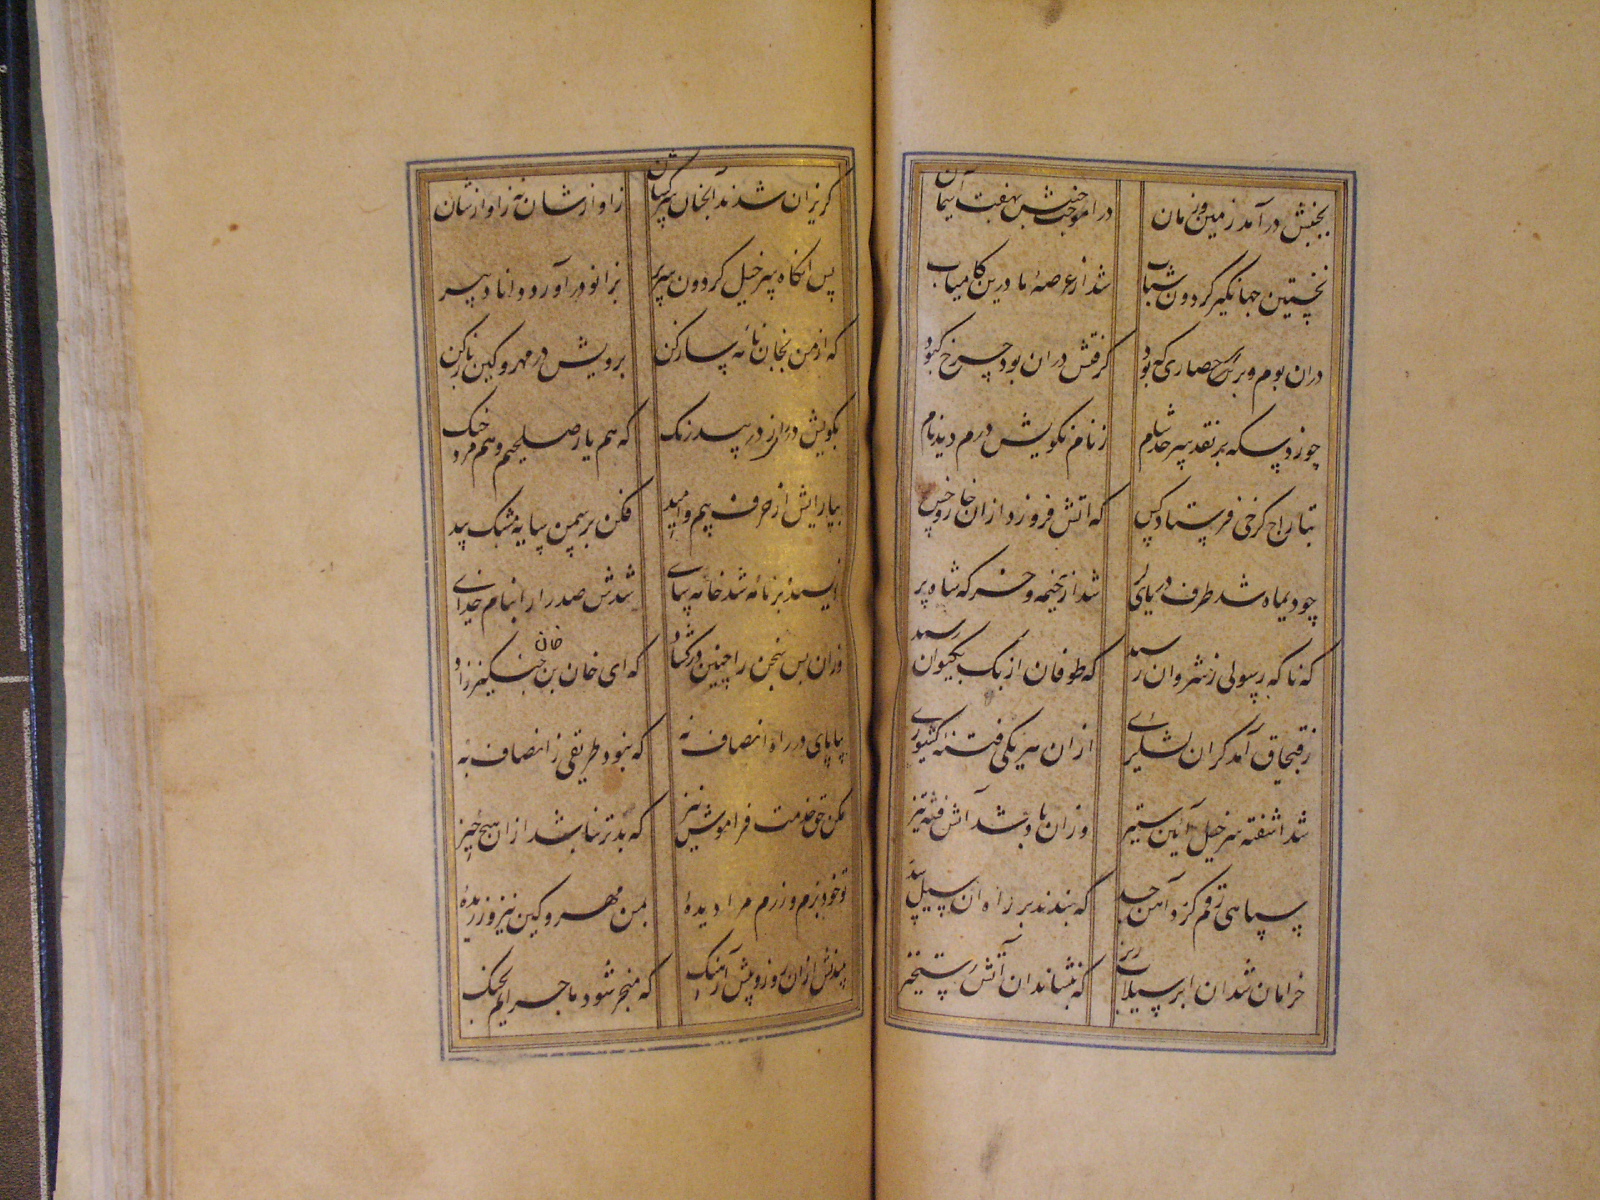 بجنبش درآمد زمین و زمان درآمد بجنبش بهفت آسمان
نخستین جهانگیر گردون شتاب شد از عرصهٔ مادرین کامیاب
دران بوم و بر هر حصاری که بود گرفتش دران بود چرخ کبود
چو زد سکه بر نقد سرحد شام ز نام نکویش درم دید نام
بتاراج کرخی فرستاد کس که آتش فروزد ازان خار و خس
چو دیماه شد طرف دریای شد از خیمه و خرکه شاه پر
که ناکه رسولی ز شروان رسید که طوفان ازبک بکیوان رسید
ز قبچاق آمد کران لشکری ازان هر یکی فتنهٔ کشوری
شد آشفته سرخیل آیین ستیز وزان باد شد آتش فتنه تیز
سپاهی رقم کرد آهن جسد که بندند بر راه آن سیل سد
خرامان شد آن ابر سیلاب ریز که بنشاند آن آتش رستخیز
گریزان شدند آنخان سرکشان ز آوازشان نه ز آوازشان
پس آنگاه سرخیل گردون سریر بزانو درآورد دانا دبیر
که از من بخان نامهٔ ساز کن برویش در مهر و کین باز کن
بگویش در آن از در پند رنگ که هم یار صلحیم و هم مرد جنگ
بیارایش از حرف بیم و امید فکن بر سمن سایهٔ مشک بید
نویسنده بر نامه شد خامه سای شدش صدر آرا بنام خدای
وزان پس سخن را چنین در گشاد که ای خان بن خان چنگیز زاد
بیا پای در راه انصاف نه که نبود طریقی ز انصاف به
مکن حق خدمت فراموش نیز که بدتر نباشد ازان هیچ چیز
تو خود بزم و رزم مرا دیدهٔ بمن مهر و کین نیز ورزیدهٔ
میندیش ازان روز و پیش آر که منجر شود ماجرایم بجنگ